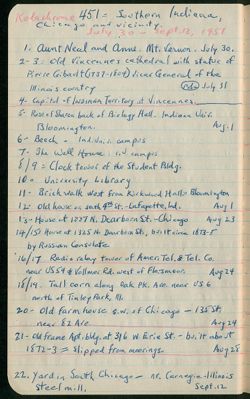 Kodachrome 451 - Southern Indiana,
Chicago and vicinity.
July 30 - Sept. 12, 1951
1. Aunt Neal and Anne. Mt. Vernon. July 30.
2-3. Old Vincennes cathedral with statue of
Pierre Gibault (1737-1804) Vicar General of the
Illinois country July 31
4- Capitol of Indiana Territory at Vincennes
5- Rose of Sharon back of Biology Hall. Indiana Univ.
Bloomington. Aug. 1
6- Beech - Ind. Univ. campus
7- The Well House I.U. campus
8/9 - Clock tower of the Student Bldg.
10- University Library
11- Brick walk west from Kirkwood Hall - Bloomington
12- Old house on South 9th St. - Lafayette, Ind. Aug 1
13- House at 1227 N. Dearborn St. - Chicago Aug 23
14/15 House at 1325 N. Dearborn St., built circa 1873-5
by Russian Consulate
16/17. Radio relay tower of Amer. Tel. & Tel. Co.
near US 54 & Vollmer Rd. west of Flossmoor Aug 24
18/19. Tall corn along Oak Pk. Ave. near US 6
north of Tinley Park, Ill.
20- Old farmhouse s.w. of Chicago - 135 St.
near 82 Ave. Aug 24
21- Old frame Apt. bldg. at 316 W. Erie St. - built about
1872-3 = slipped from moorings. Aug 28
22. Yard in South Chicago - nr. Carnegie-Illinois
Steel mill. Sept. 12